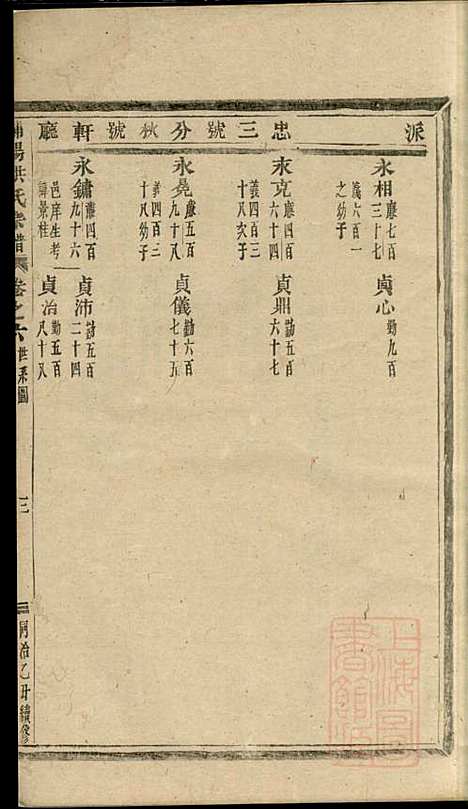 派 忠三號分秋號軒廳
永相 廉七百三十七
義六百一之幼子
貞心 勤九百
永克 廉四百六十四
義四百三十八次子
貞鼎 勤五百六十七
永堯 廉五百九十八
義四百三十八幼子
貞儀 勤六百七十五
永鏞 廉四百九十六
邑庠生考諱景桂
貞沛 勤五百二十四
貞治 勤五百八十八
陽洪氏宗譜 卷之六 世系圖
三
同治乙丑續修
上海圖書館